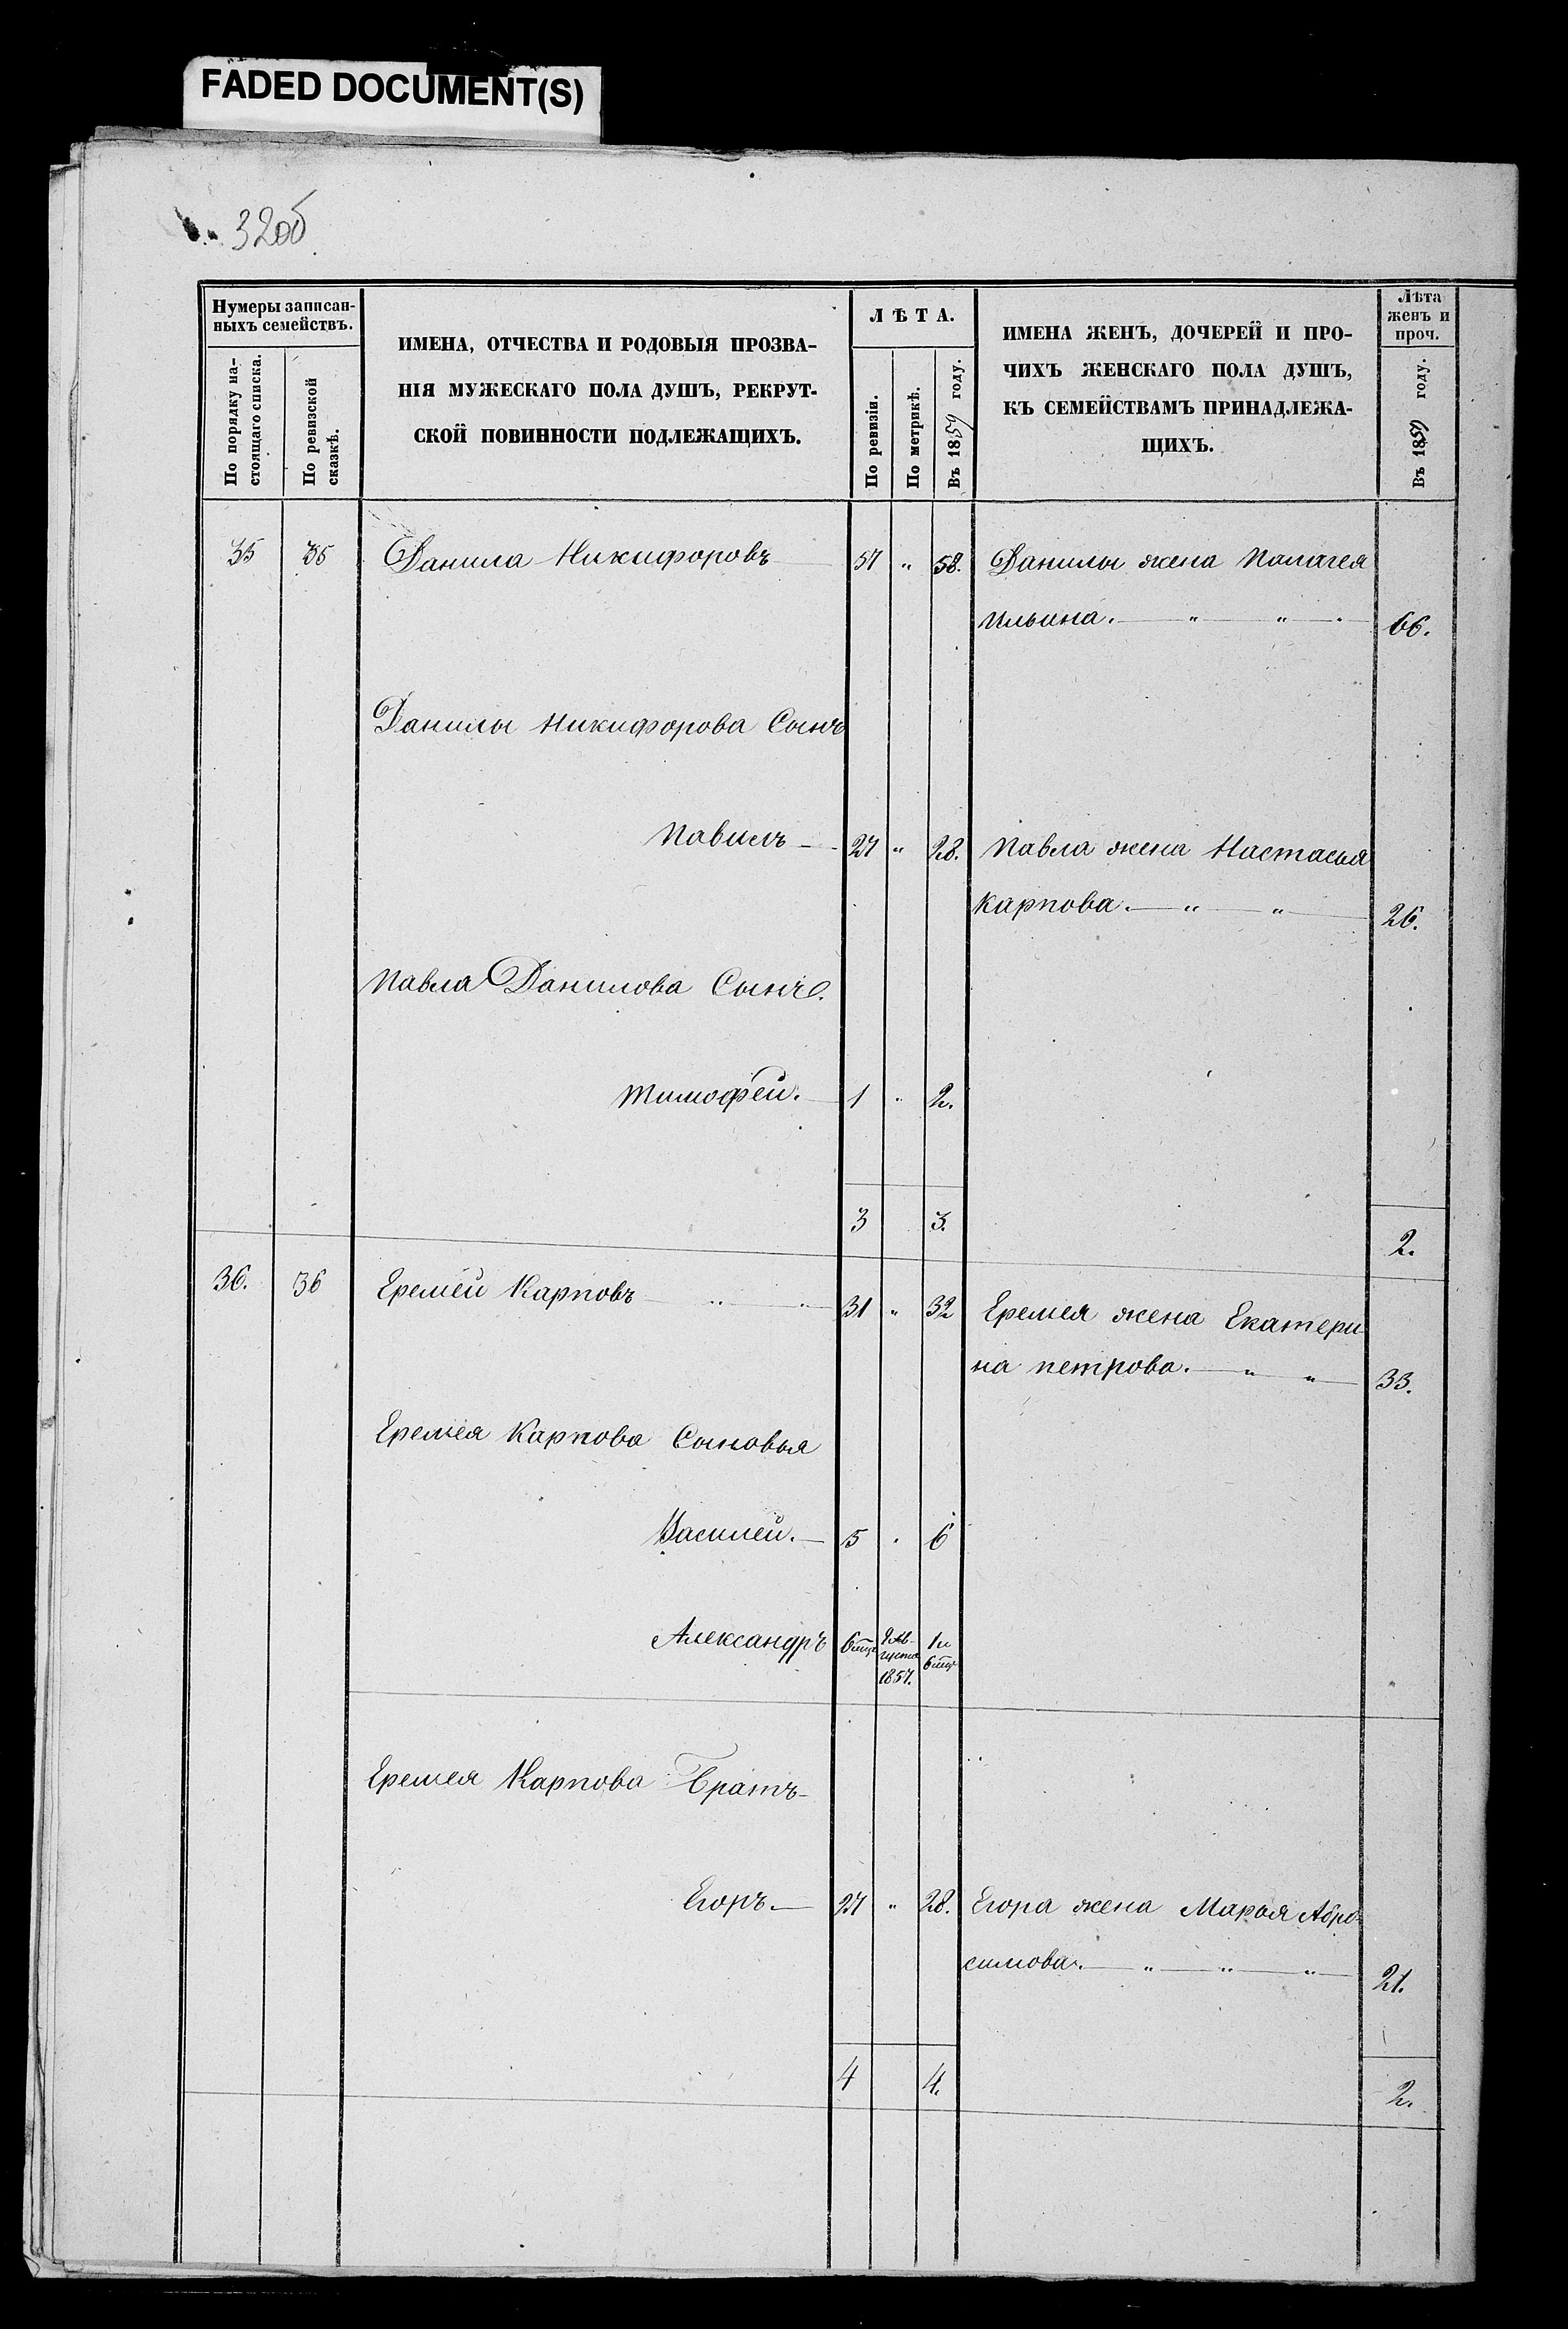 FADED DOCUMENT(S)
32об
Нумеры записан-
ныхъ семействъ.
По порядку на-
стоящаго списка.
По ревизской
сказкѣ.
ИМЕНА, ОТЧЕСТВА И РОДОВЫЯ ПРОЗВА-
НІЯ МУЖЕСКАГО ПОЛА ДУШЪ, РЕКРУТ-
СКОЙ ПОВИННОСТИ ПОДЛЕЖАЩИХЪ.
ЛѢТА.
По ревизіи.
По метрикѣ.
Въ 1859 году.
ИМЕНА ЖЕНЪ, ДОЧЕРЕЙ И ПРО-
ЧИХЪ ЖЕНСКАГО ПОЛА ДУШЪ,
КЪ СЕМЕЙСТВАМЪ ПРИНАДЛЕЖА-
ЩИХЪ.
Лѣта
женъ и
проч.
Въ 1859 году.
35 35 Данила Никифоровъ 57 „ 58. Данилы жена Палагея
Ильина. „ „ 66.
Данилы Никифорова Сынъ
Павилъ 27 „ 28. Павла жена Настасья
Карпова. „ „ 26.
Павла Данилова Сынъ.
Тимофей. 1 „ 2.
3 3. 2.
36. 36 Еремей Карповъ „ „ 31 „ 32 Еремея жена Екатери
на петрова. „ „ 33.
Еремея Карпова Сыновья
Василей. 5 „ 6
Александръ 6 мц 1857. 1 и
6 мц
Еремея Карпова Братъ
Егоръ. 27 „ 28. Егора жена Марья Абро
симова. „ „ „ 21.
4 4. 2.